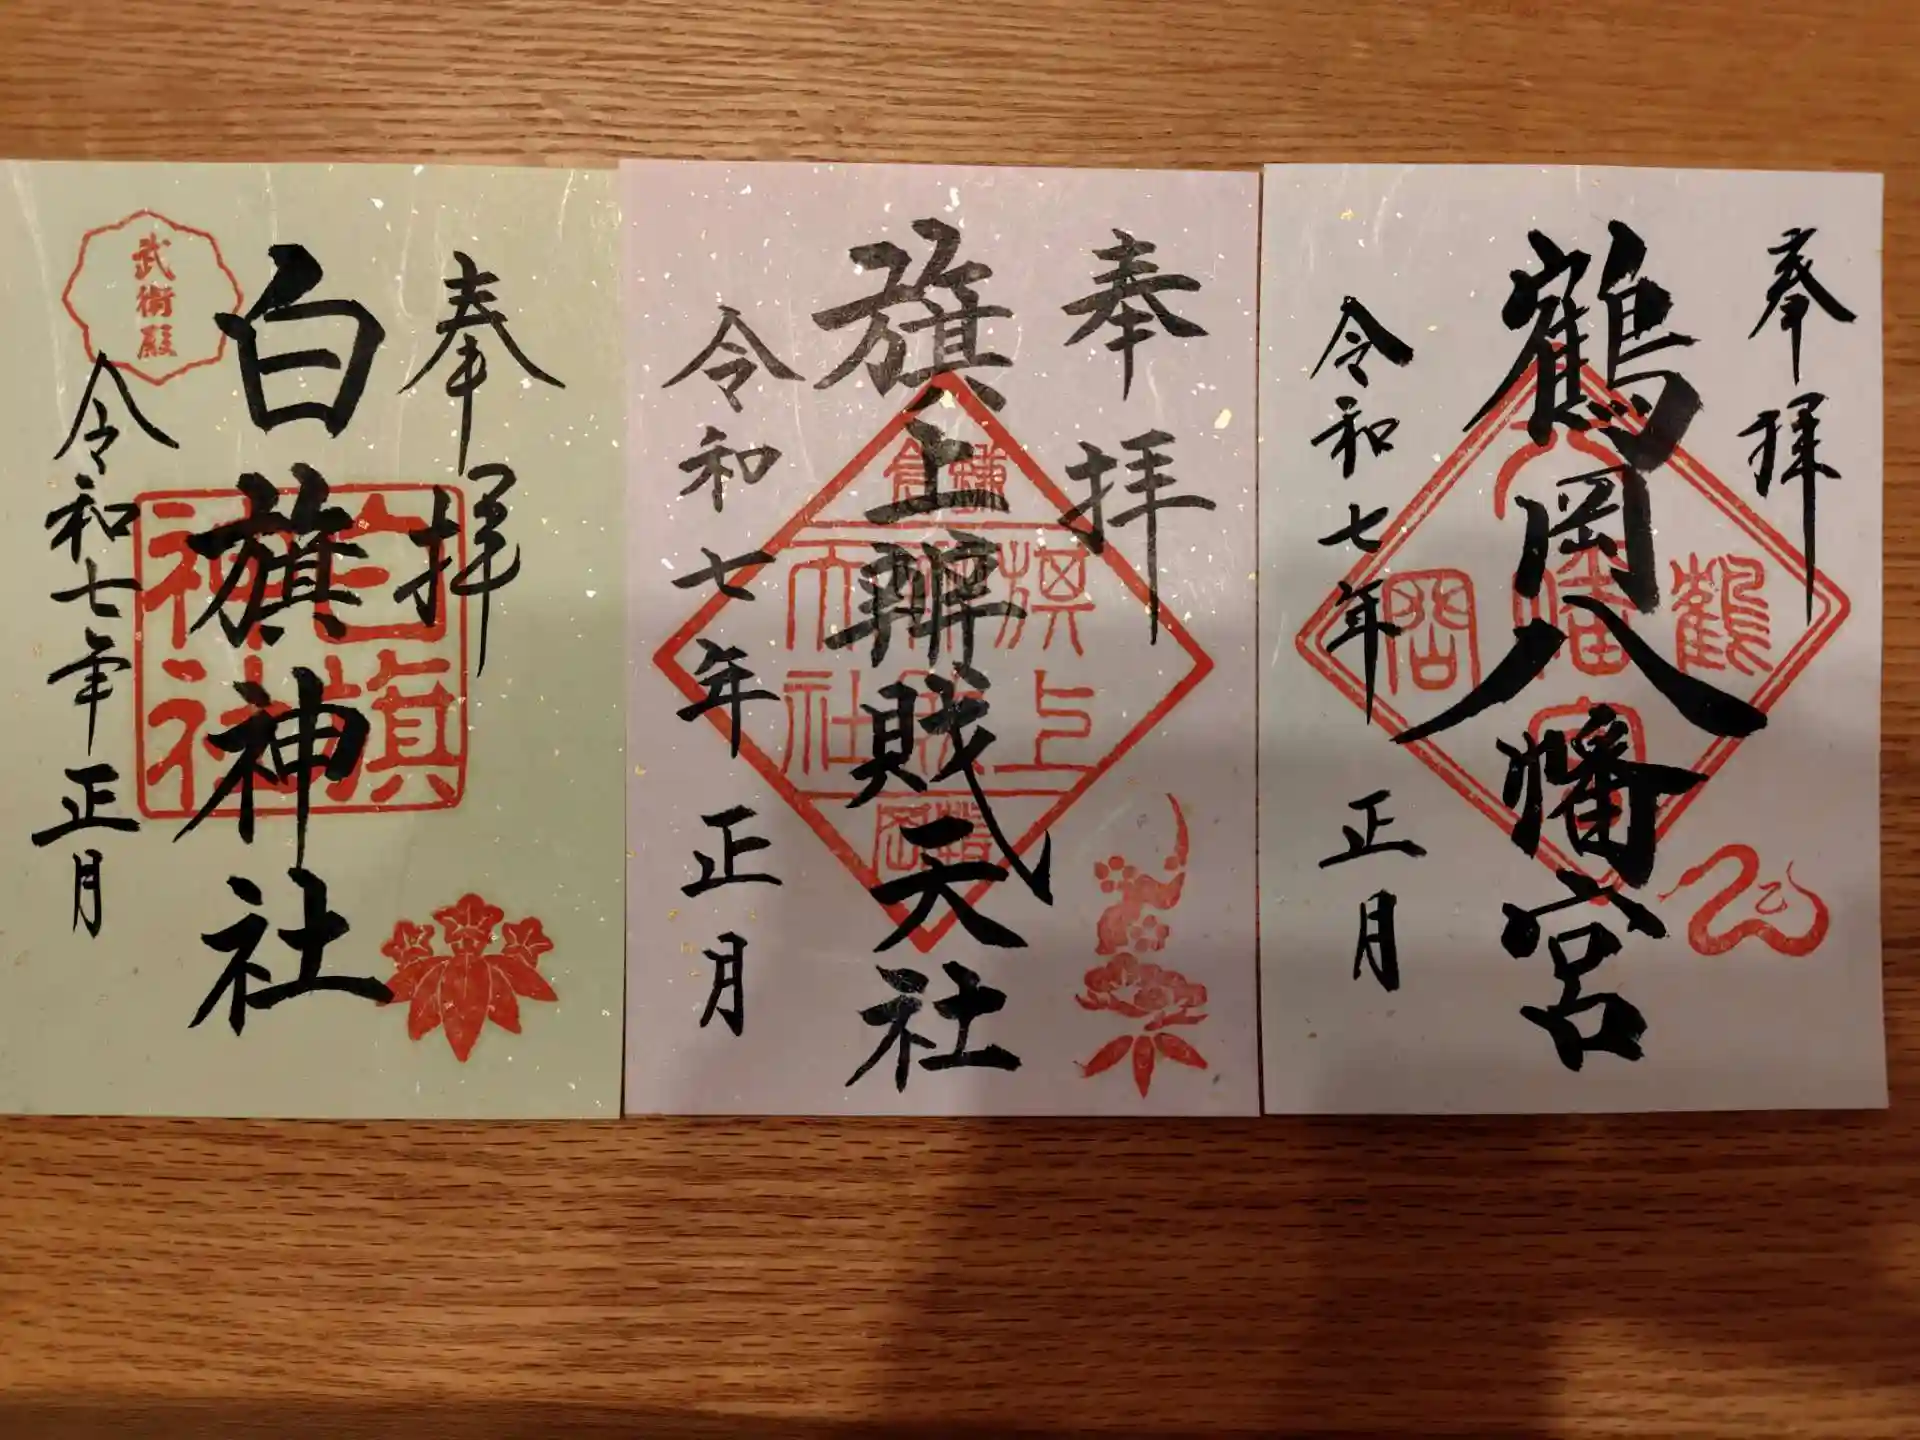 奉拝
白旗神社
令和七年正月
武術殿
白旗
神社
奉拝
旗上辨賎天社
令和七年正月
鎌倉
旗上
天社
奉拝
鶴岡八幡宮
令和七年正月
鶴
岡
八幡宮